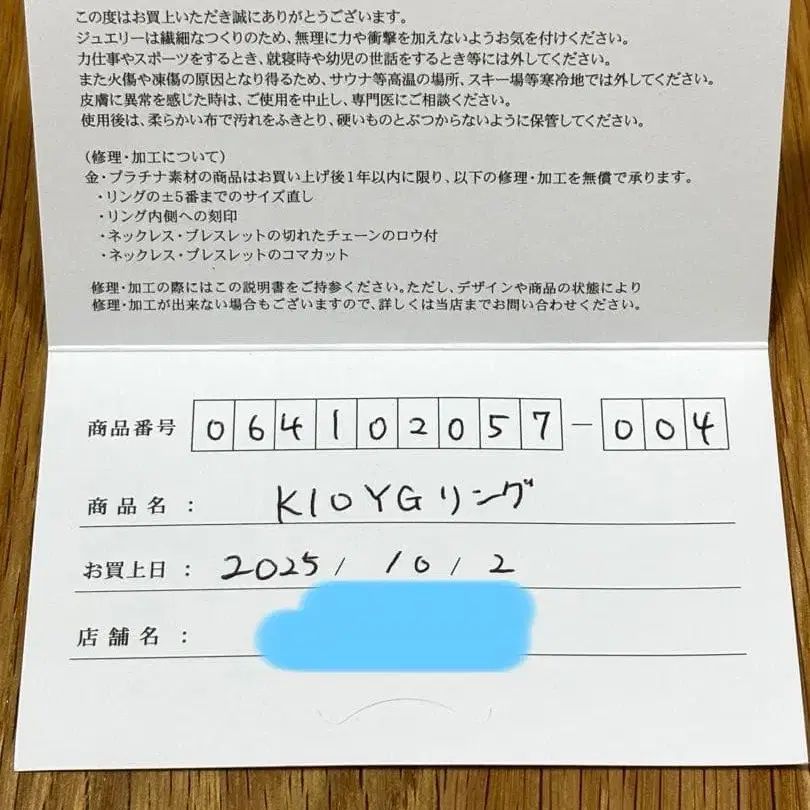 この度はお買上いただき誠にありがとうございます。
ジュエリーは繊細なつくりのため、無理に力や衝撃を加えないようお気を付けください。
力仕事やスポーツをするとき、就寝時や幼児の世話をするとき等には外してください。
また火傷や凍傷の原因となり得るため、サウナ等高温の場所、スキー場等寒冷地では外してください。
皮膚に異常を感じた時は、ご使用を中止し、専門医にご相談ください。
使用後は、柔らかい布で汚れをふきとり、硬いものとぶつからないように保管してください。
（修理・加工について）
金・プラチナ素材の商品はお買い上げ後1年以内に限り、以下の修理・加工を無償で承ります。
・リングの±5番までのサイズ直し
・リング内側への刻印
・ネックレス・ブレスレットの切れたチェーンのロウ付
・ネックレス・ブレスレットのコマカット
修理・加工の際にはこの説明書をご持参ください。ただし、デザインや商品の状態により
修理・加工が出来ない場合もございますので、詳しくは当店までお問い合わせください。
商品番号 064102057-004
商品名： K10YGリング
お買上日： 2025/10/2
店舗名：